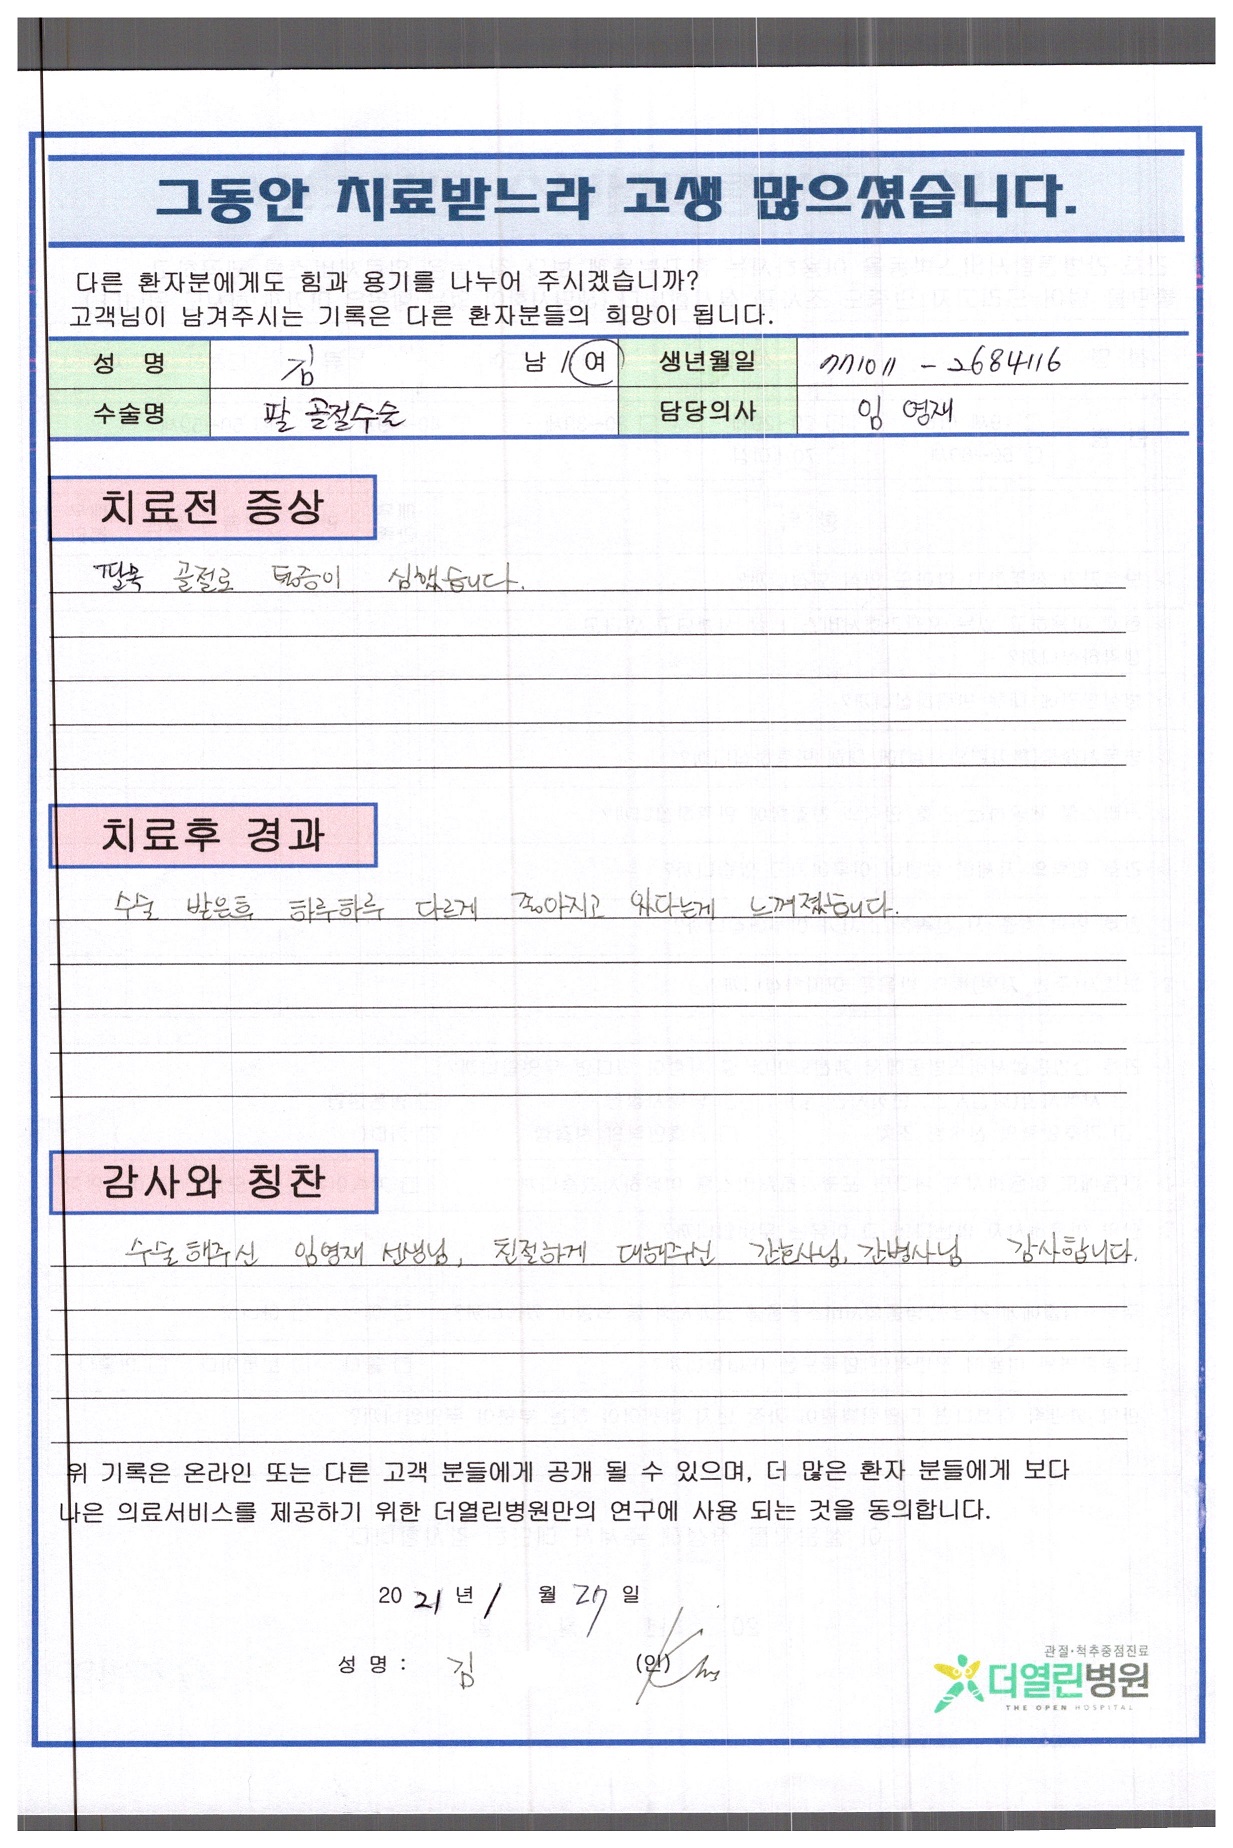 그동안 치료받느라 고생 많으셨습니다.
다른 환자분에게도 힘과 용기를 나누어 주시겠습니까?
고객님이 남겨주시는 기록은 다른 환자분들의 희망이 됩니다.
성 명 김 남 / 여 생년월일 771011 - 2684116
수술명 팔 골절수술 담당의사 임 영재
치료전 증상
팔목 골절로 통증이 심했습니다.
치료후 경과
수술 받은후 하루하루 다르게 좋아지고 있다는게 느껴졌습니다.
감사와 칭찬
수술해주신 임영재 선생님, 친절하게 대해주신 간호사님, 간병사님 감사합니다.
위 기록은 온라인 또는 다른 고객 분들에게 공개 될 수 있으며, 더 많은 환자 분들에게 보다
나은 의료서비스를 제공하기 위한 더열린병원만의 연구에 사용 되는 것을 동의합니다.
20 21 년 1 월 27 일
성 명 : 김 (인)
관절·척추중점진료
더열린병원
THE OPEN HOSPITAL